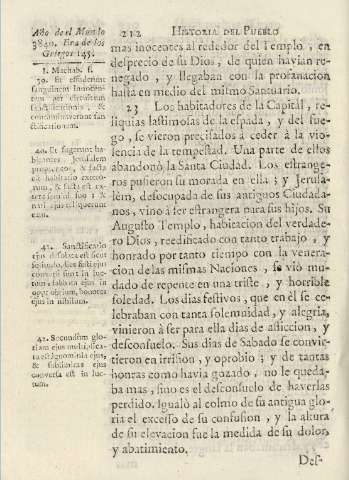 Año de el Mundo
3840. Era de los
Griegos 145.
212 HISTORIA DEL PUEBLO
mas inocentes al rededor del Templo, en
desprecio de su Dios, de quien havian re-
negado, y llegaban con la profanacion
hasta en medio del mismo Santuario.
23 Los habitadores de la Capital, re-
liquias lastimosas de la espada, y del fue-
go, se vieron precisados à ceder à la vio-
lencia de la tempestad. Una parte de ellos
abandonò la Santa Ciudad. Los estrange-
ros pusieron su morada en ella; y Jerusa-
lèm, desocupada de sus antiguos Ciudada-
nos, vino à ser estrangera para sus hijos. Su
Augusto Templo, habitacion del verdade-
ro Dios, reedificado con tanto trabajo, y
honrado por tanto tiempo con la venera-
cion de las mismas Naciones, se viò mu-
dado de repente en una triste, y horrible
soledad. Los dias festivos, que en èl se ce-
lebraban con tanta solemnidad, y alegria,
vinieron à ser para ella dias de afliccion, y
desconsuelo. Sus dias de Sabado se convir-
tieron en irrision, y oprobio; y de tantas
honras como havia gozado, no le queda-
ba mas, sino es el desconsuelo de haverlas
perdido. Igualò al colmo de su antigua glo-
ria el excesso de su confusion, y la altura
de su elevacion fue la medida de su dolor,
y abatimiento.
Des-
I. Machab. I.
39. Et effuderunt
sanguinem innocen-
tem per circuitum
sanctificationis, &
contaminaverunt san-
ctificationem.
40. Et fugerunt ha-
bitatores Jerusalem
propter eos, & facta
est habitatio extero-
rum, & facta est ex-
tera semini suo: &
nati ejus reliquerunt
eam.
41. Sanctificatio
ejus desolata est sicut
solitudo, dies festi ejus
conversi sunt in luc-
tum, sabbata ejus in
opprobrium, honores
ejus in nihilum.
42. Secundum glo-
riam ejus multiplica-
ta est ignominia ejus,
& sublimitas ejus
conversa est in luc-
tum.